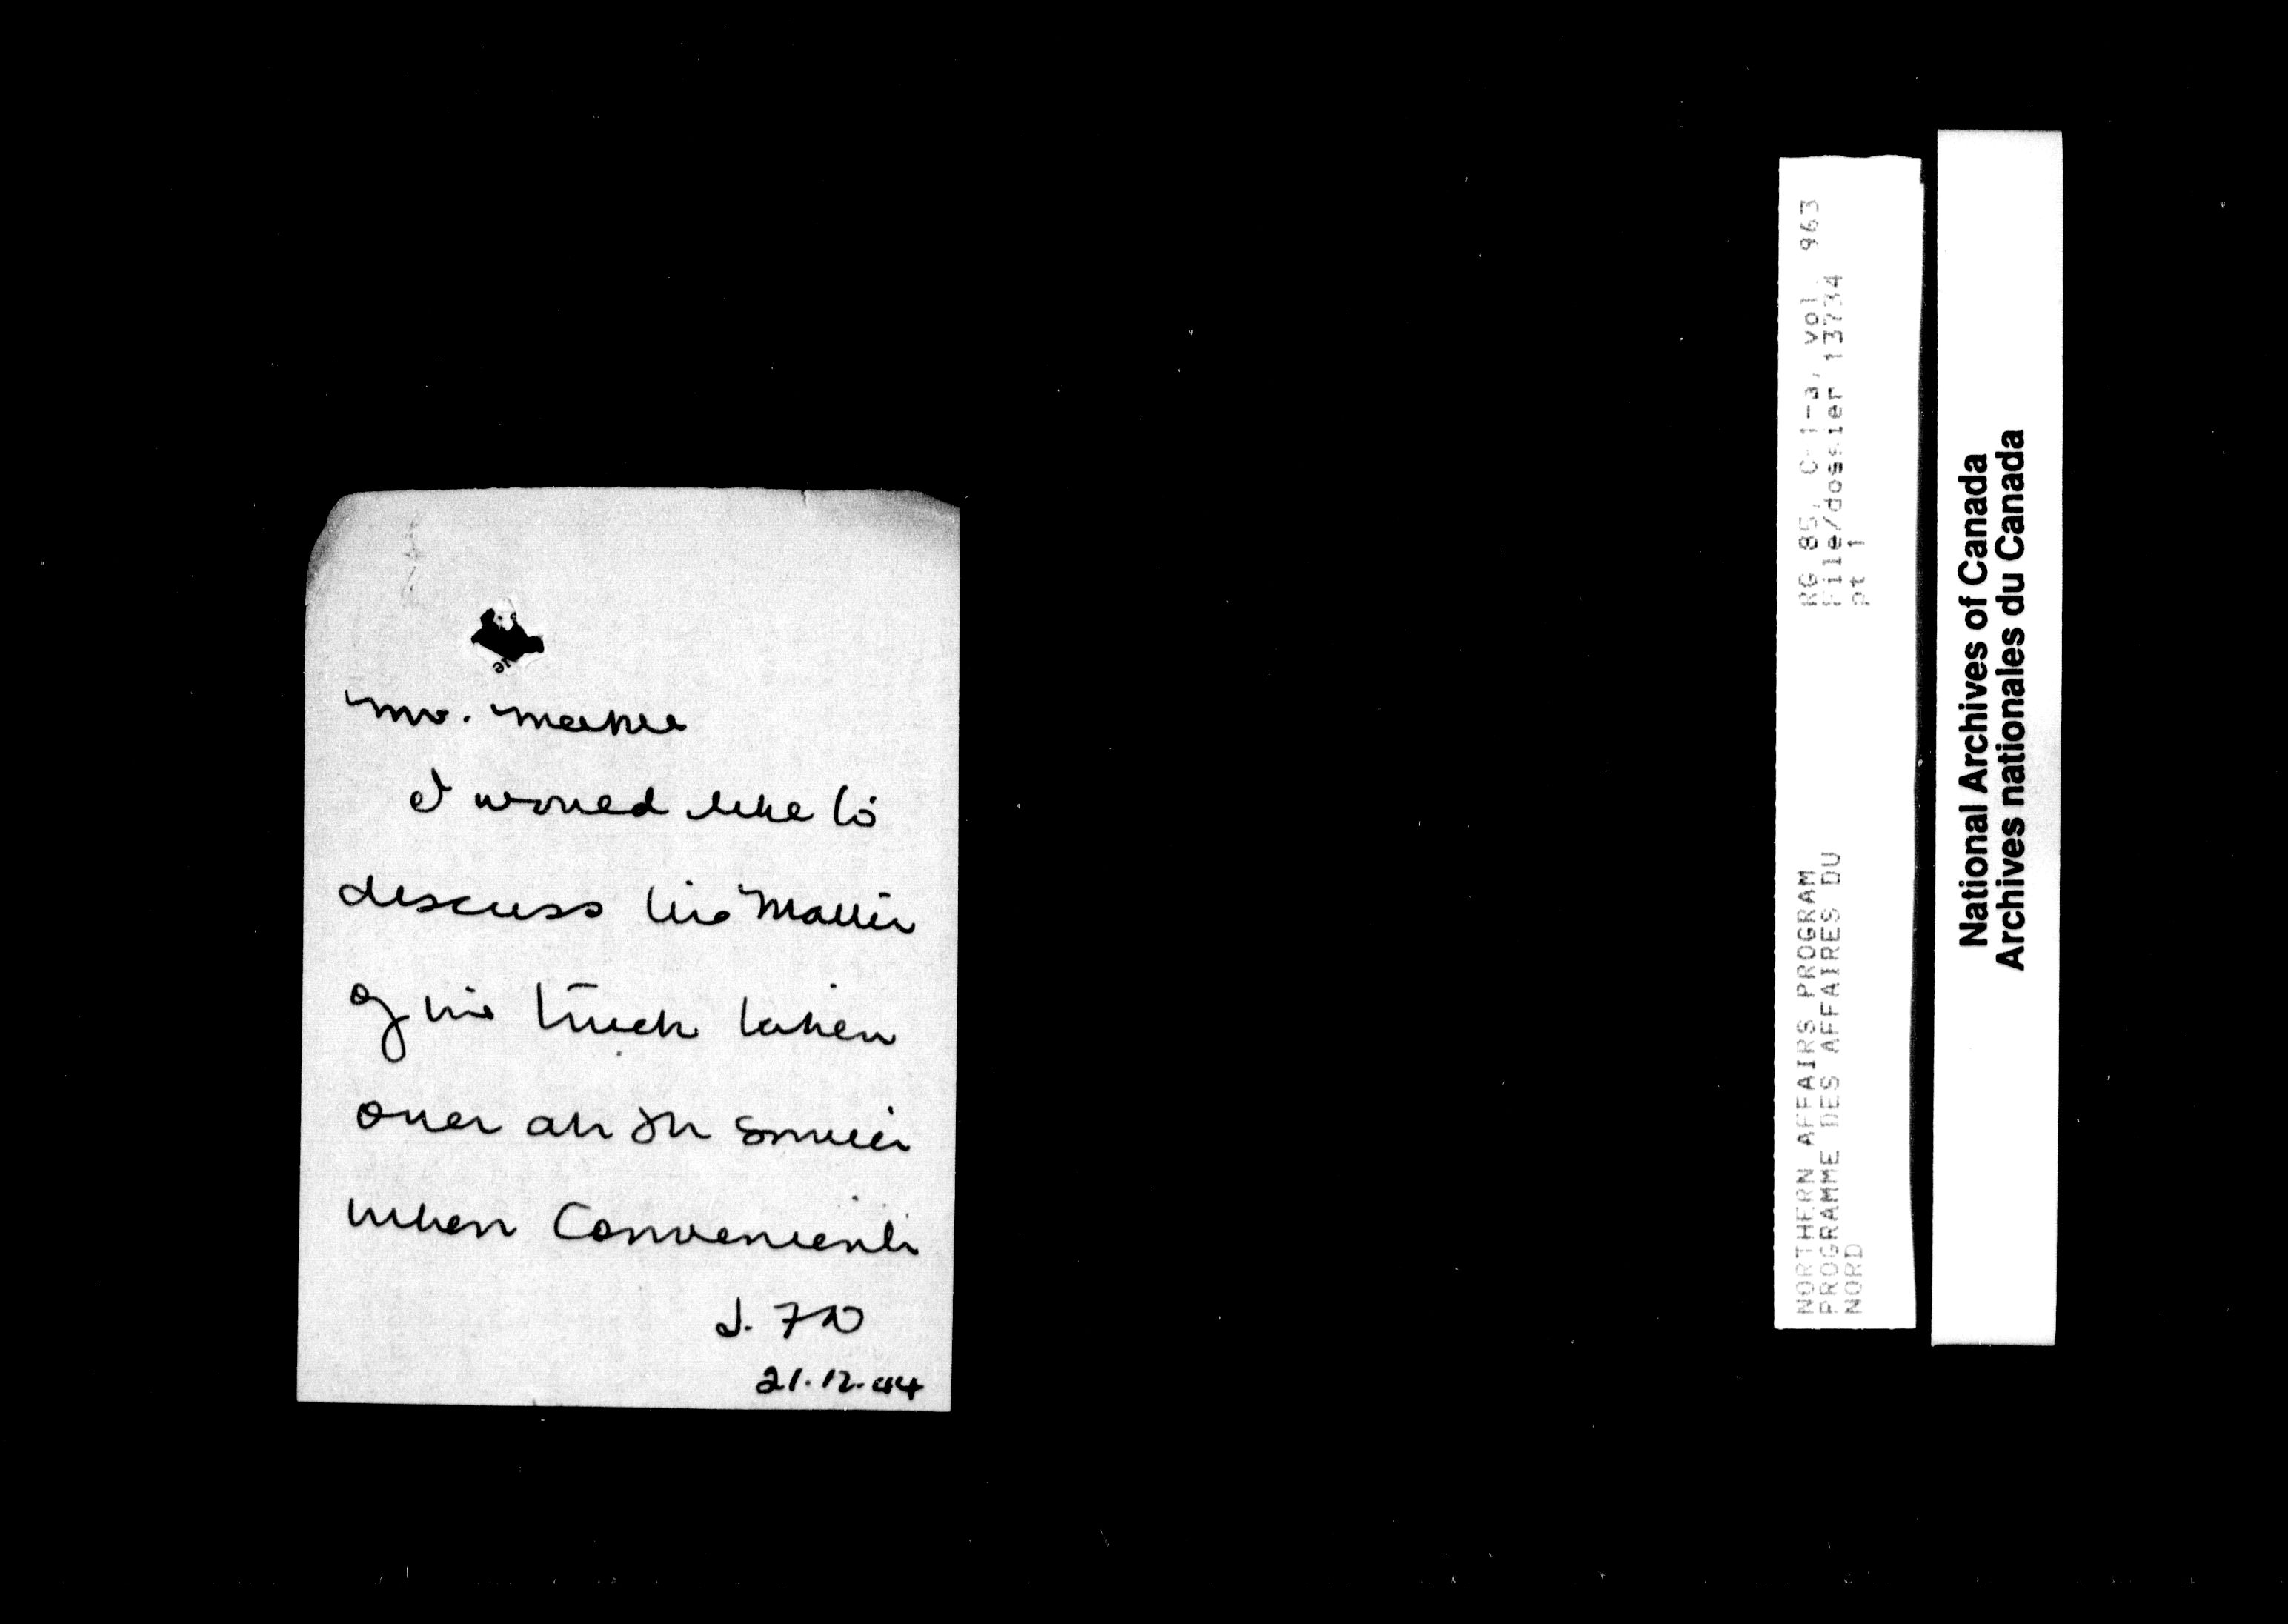 Mr. Meikle
I would like to
discuss this matter
of the truck taken
over at Ft Smith
when convenient
21.12.44
RG 85, C-1-a, vol. 963
File/dossier 13734
pt 1
NORTHERN AFFAIRS PROGRAM
PROGRAMME DES AFFAIRES DU
NORD
National Archives of Canada
Archives nationales du Canada